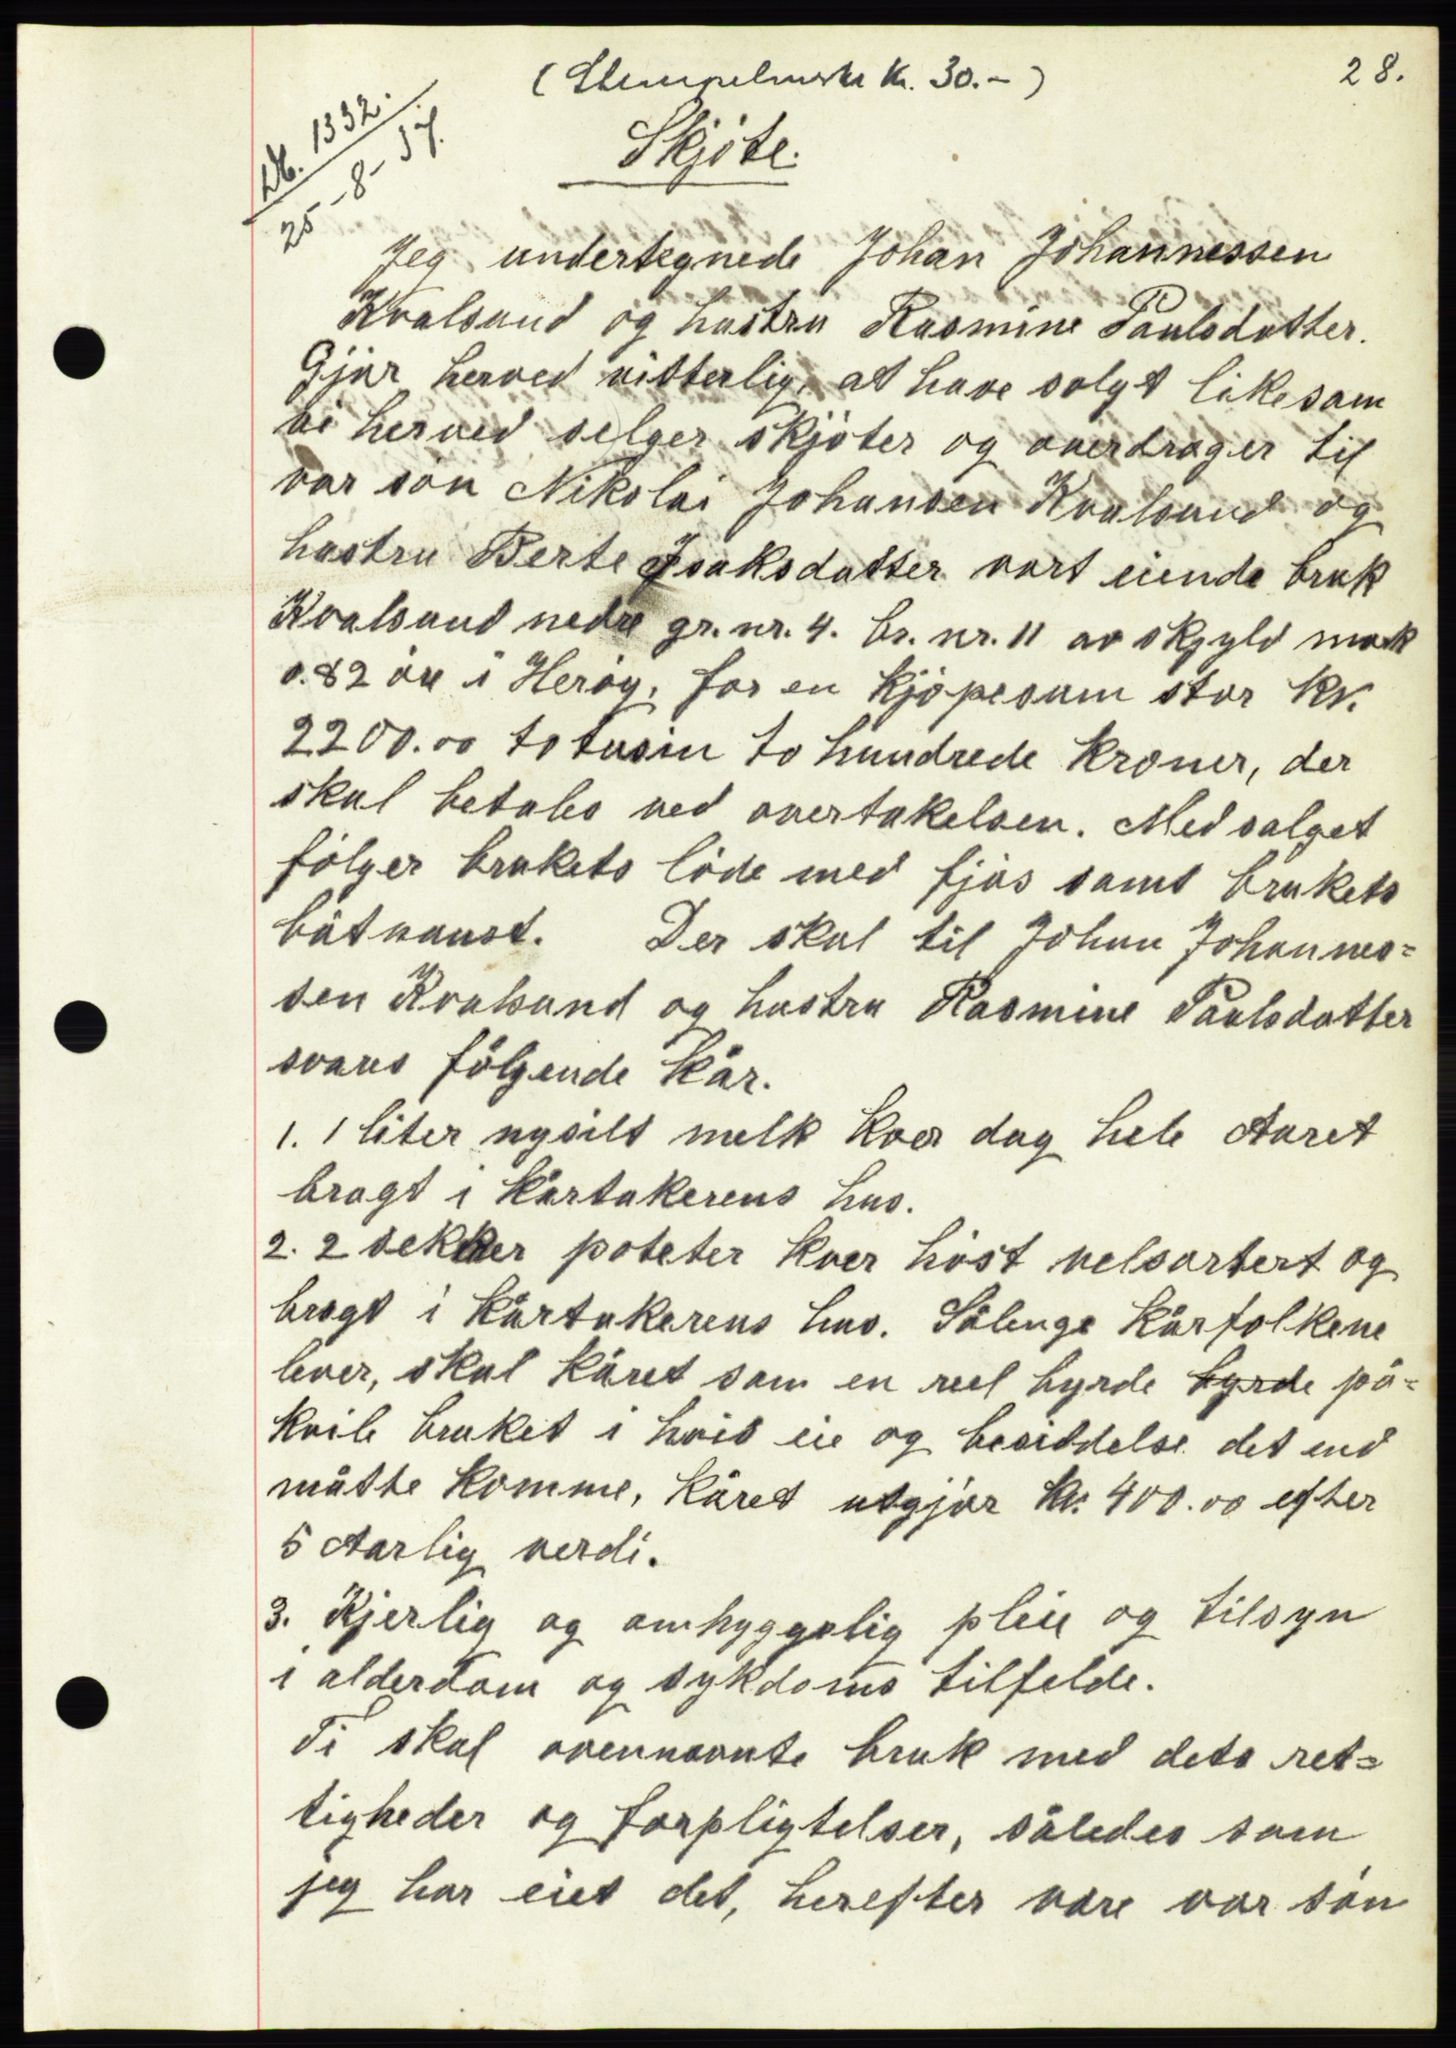 28.
(Stempelmerke Kr. 30.-)
Nr. 1332.
25-8-37.
Skjöte.
Jeg undertegnede Johan Johannessen
Kvalsund og hustru Rasmine Paulsdatter.
Gjör herved vitterlig, at have solgt likesom
vi herved selger skjöter og overdrager til
vor sön Nikolai Johansen Kvalsund og
hustru Berte Isaksdatter vort eiende bruk
Kvalsund nedre gr. nr. 4. br. nr. 11 av skjyld mark
0.82 öre i Heröy, for en kjöpesum stor kr.
2200.00 totusin to hundrede kroner, der
skal betales ved overtakelsen. Med salget
fölger brukets löde med fjös samt brukets
båtnaust. Der skal til Johan Johannes=
sen Kvalsund og hustru Rasmine Paulsdatter
svares fölgende kår.
1. 1 liter nysilt melk kver dag hele Aaret
bragt i kårtakerens hus.
2. 2 sekker poteter kver höst velsortert og
bragt i kårtakerens hus. Sålenge kårfolkene
lever, skal kåret som en reel byrde byrde på=
kvile bruket i hvis eie og besiddelse det end
måtte komme, kåret utgjör kr. 400.00 efter
5 Aarlig verdi.
3. Kjerlig og omhyggelig pleie og tilsyn
i alderdom og sykdoms tilfelde.
Ti skal ovennevnte bruk med dets ret=
tigheder og forpligtelser, således som
jeg har eiet det, herefter være vor sön